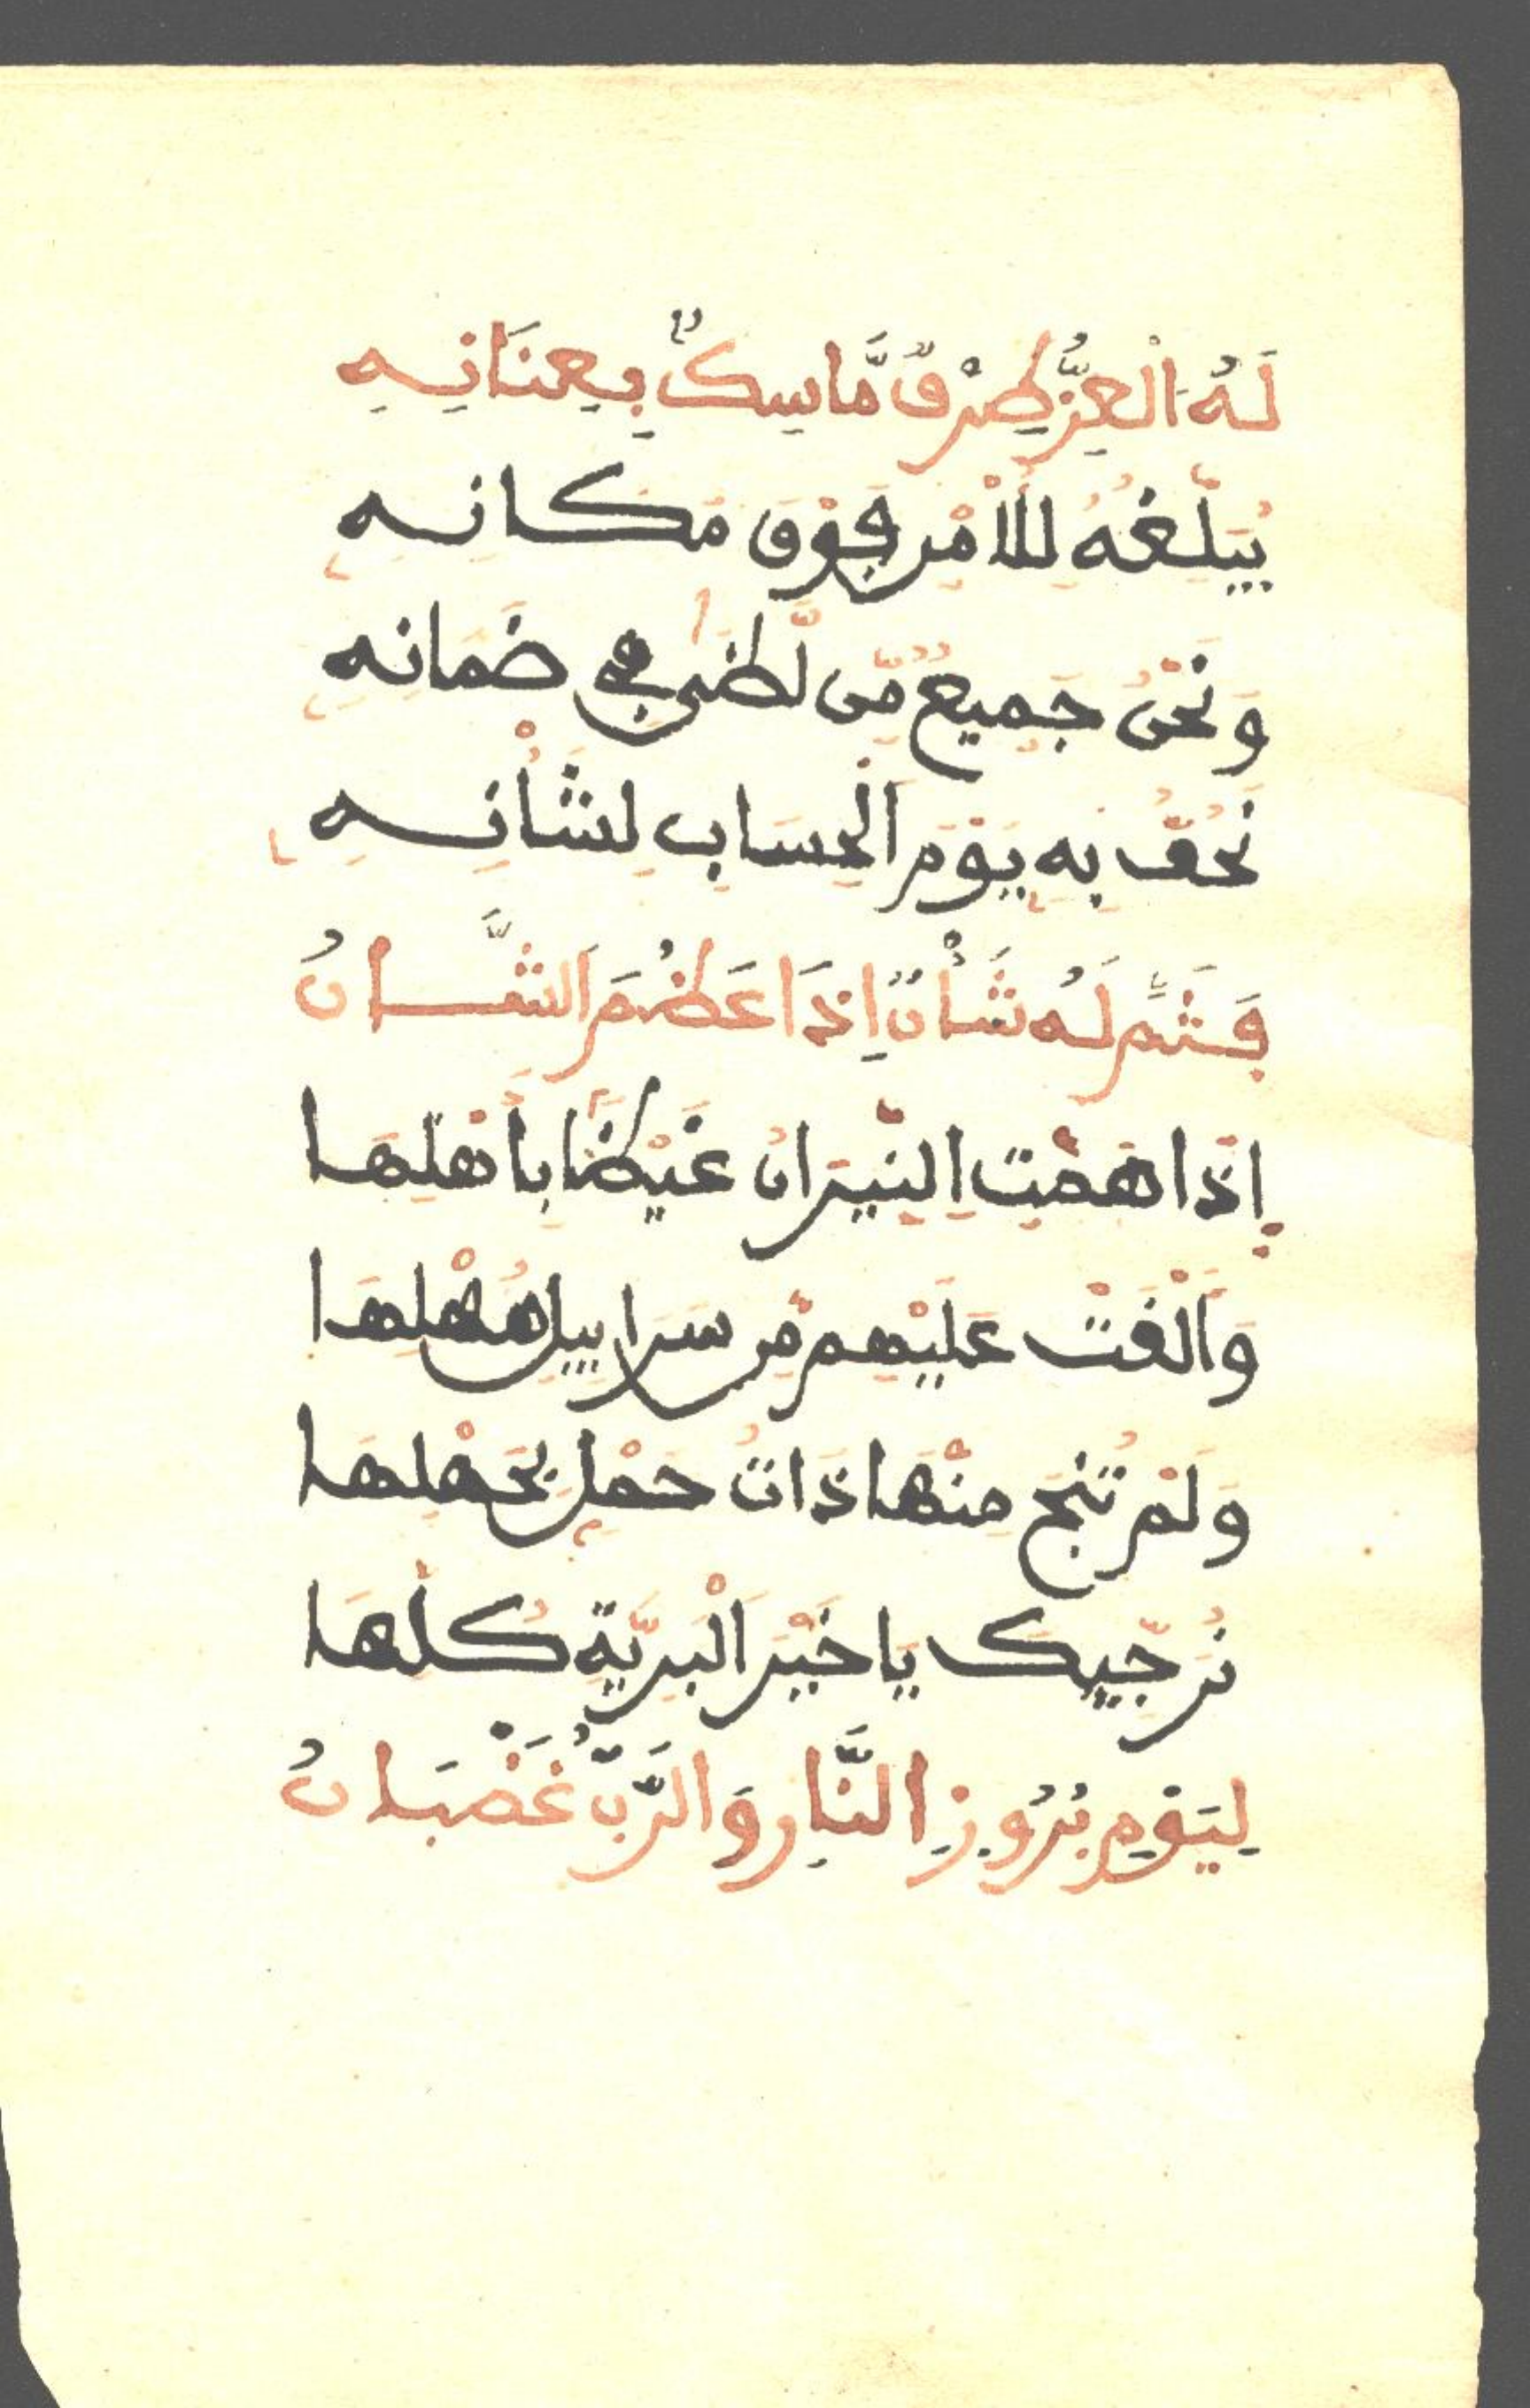 لَهُ الْعِزُّ طِرْفٌ مَّاسِكٌ بِعِنَانِهِ
يُبَلِّغُهُ لِلْأَمْرِ فَوْقَ مَكَانِهِ
وَنَحْنُ جَمِيعٌ مِّن لَّظَىٰ فِي ضَمَانِهِ
نَحُفُّ بِهِ يَوْمَ الْحِسَابِ لِشَأْنِهِ
فَثَمَّ لَهُ شَأْنٌ إِذَا عَظُمَ الشَّانُ
إِذَا هَمَّتِ النِّيرَانُ غَيْظًا بِأَهْلِهَا
وَأَلْقَتْ عَلَيْهِم مِّن سَرَابِيلِ مُهْلِهَا
وَلَمْ تَنْجُ مِنْهَا ذَاتُ حَمْلٍ بِحَمْلِهَا
نُرَجِّيكَ يَا خَيْرَ الْبَرِيَّةِ كُلِّهَا
لِيَوْمِ بُرُوزِ النَّارِ وَالرَّبُّ غَضْبَانُ